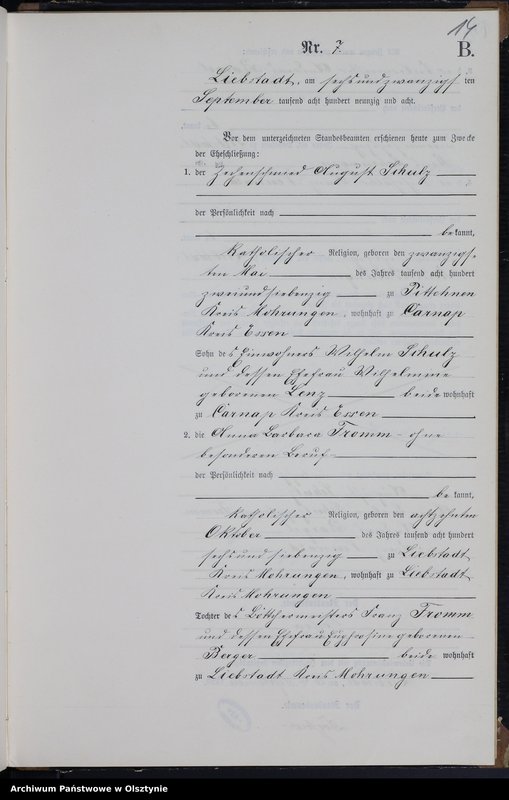 14
Nr. 7.
B.
Liebstadt, am sechsundzwanzigsten
September tausend acht hundert neunzig und acht.
Vor dem unterzeichneten Standesbeamten erschienen heute zum Zwecke
der Eheschließung:
1. der Zechenschmied August Schulz
der Persönlichkeit nach
bekannt,
katholischer Religion, geboren den zwanzigs-
ten Mai des Jahres tausend acht hundert
zweiundsiebenzig zu Pittehnen
Kreis Mohrungen, wohnhaft zu Carnap
Kreis Essen
Sohn des Einwohners Wilhelm Schulz
und dessen Ehefrau Wilhelmine
geborenen Lenz beide wohnhaft
zu Carnap Kreis Essen
2. die Anna Barbara Fromm - ohne
besonderen Beruf
der Persönlichkeit nach
bekannt,
katholischer Religion, geboren den achtzehnten
Oktober des Jahres tausend acht hundert
sechsundsiebenzig zu Liebstadt,
Kreis Mohrungen, wohnhaft zu Liebstadt,
Kreis Mohrungen
Tochter des Böttchermeisters Franz Fromm
und dessen Ehefrau Euphrosine geborenen
Berger beide wohnhaft
zu Liebstadt Kreis Mohrungen
Archiwum Państwowe w Olsztynie